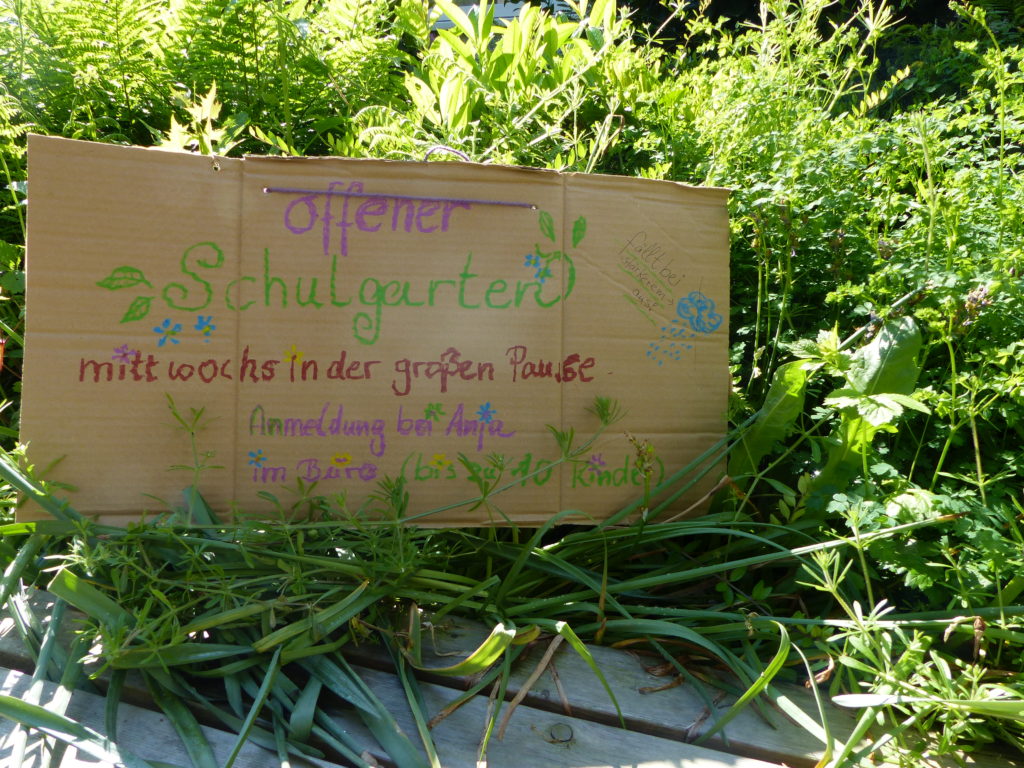 offener
Schulgarten
fällt bei
stärkerem
aus!
mittwochs in der großen Pause
Anmeldung bei Anja
im Büro (bis zu 10 Kinder)